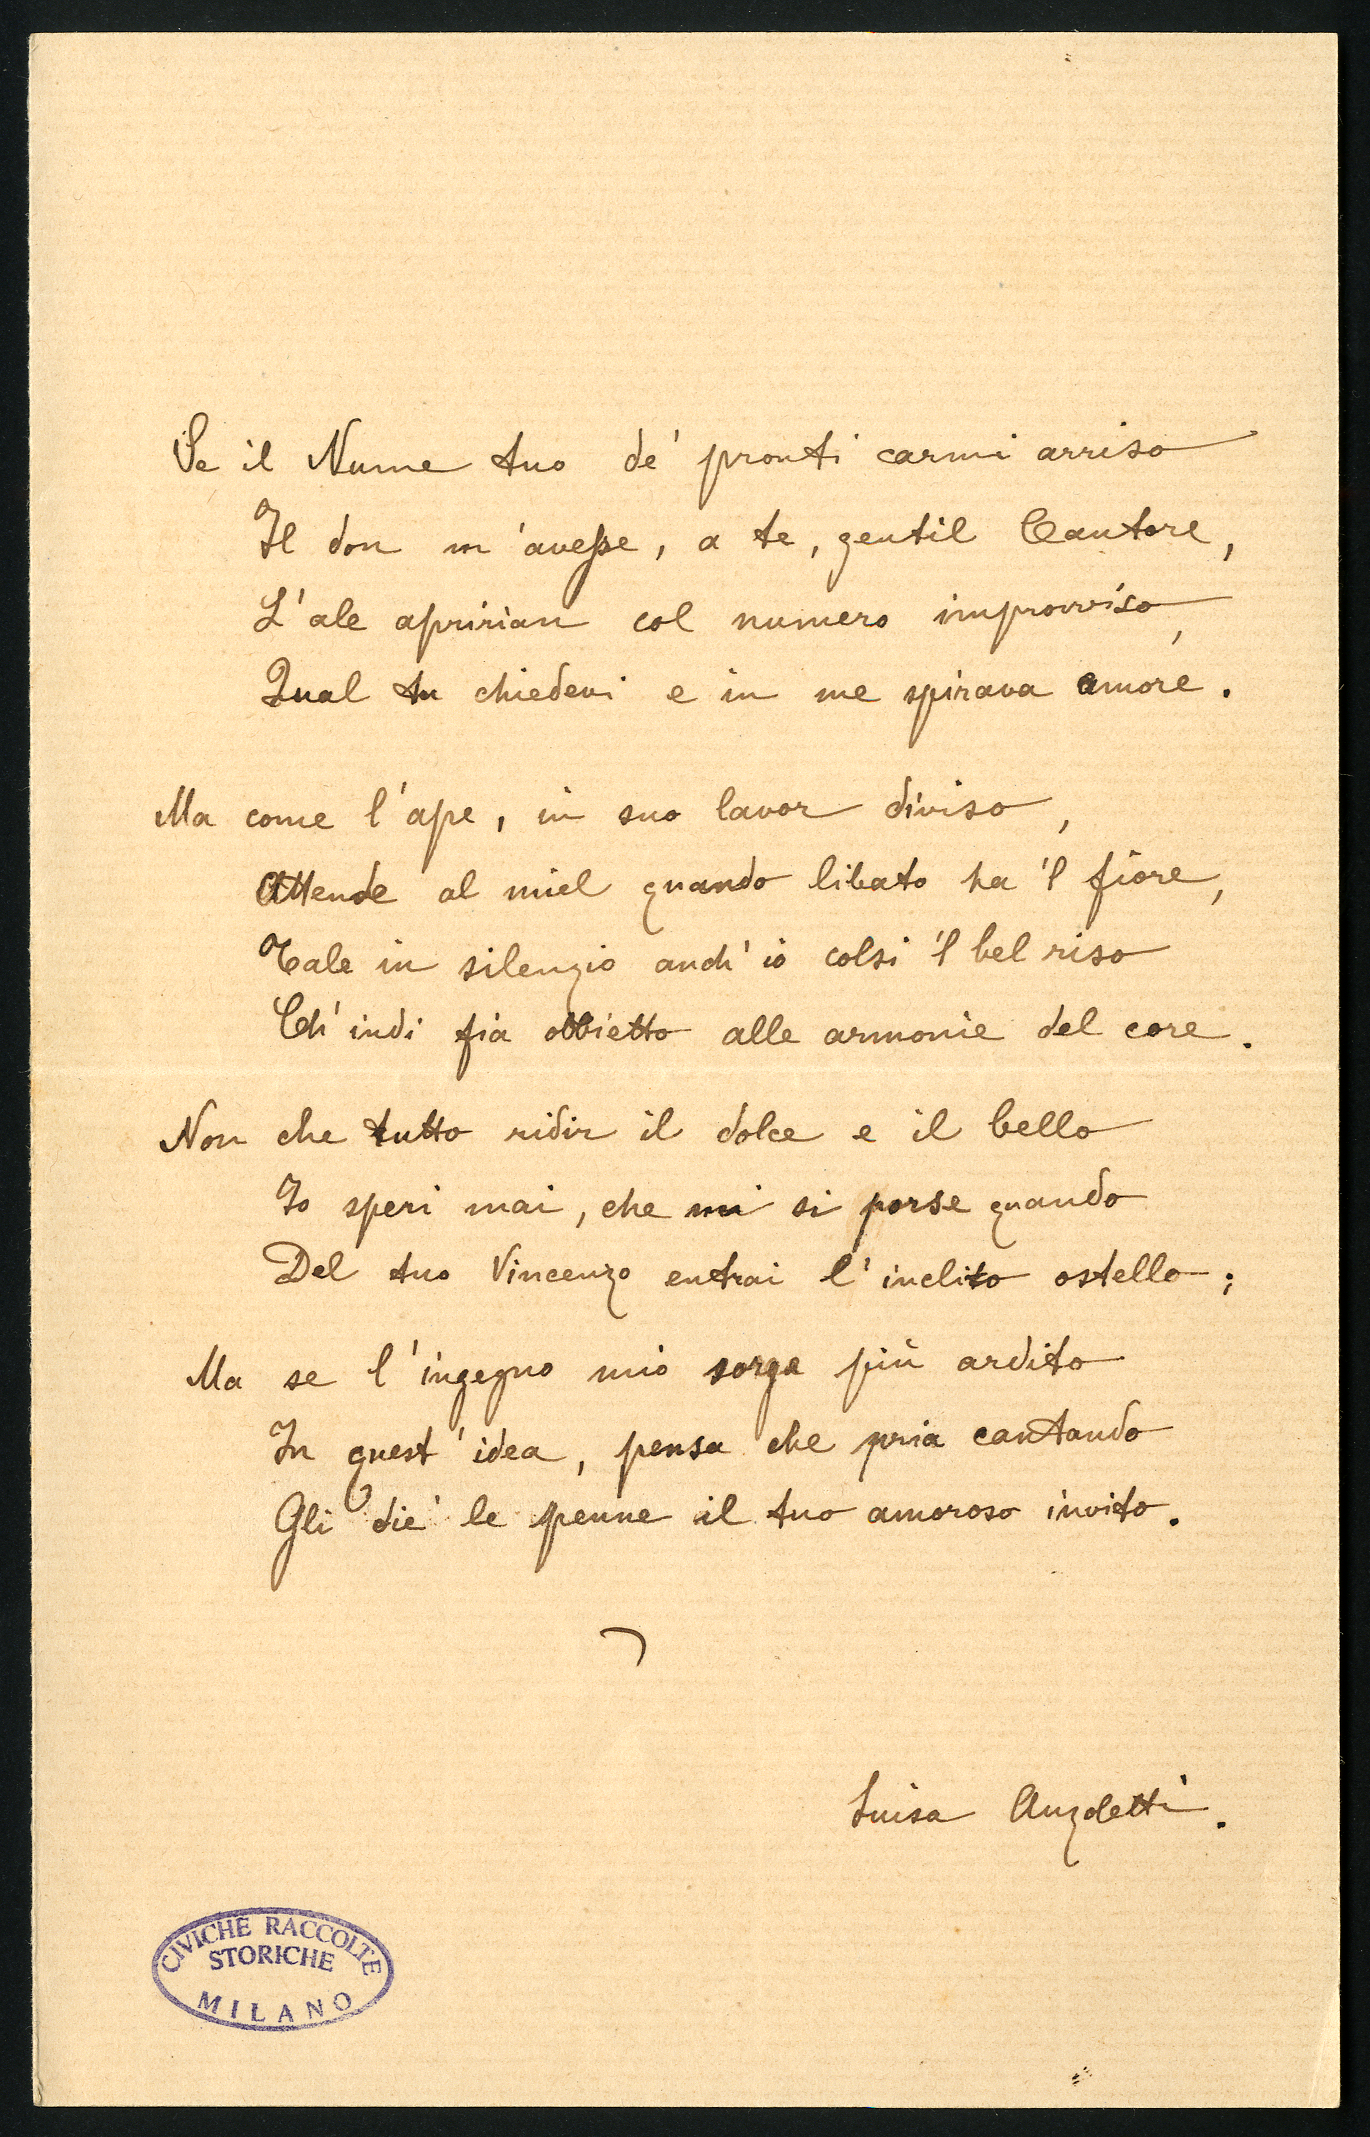 Se il Nume tuo de' pronti carmi arriso
Il don m'avesse, a te, gentil Cantore,
L'ale apririan col numero improvviso,
Qual tu chiedevi e in me spirava amore.
Ma come l'ape, in suo lavor diviso,
Attende al miel quando libato ha 'l fiore,
Tale in silenzio anch'io colsi 'l bel riso
Ch'indi fia obbietto alle armonie del core.
Non che tutto ridir il dolce e il bello
Io speri mai, che mi si porse quando
Del tuo Vincenzo entrai l'inclito ostello;
Ma se l'ingegno mio sorga più ardito
In quest'idea, pensa che pria cantando
Gli diè le penne il tuo amoroso invito.
Luisa Anzoletti.
CIVICHE RACCOLTE
STORICHE
MILANO